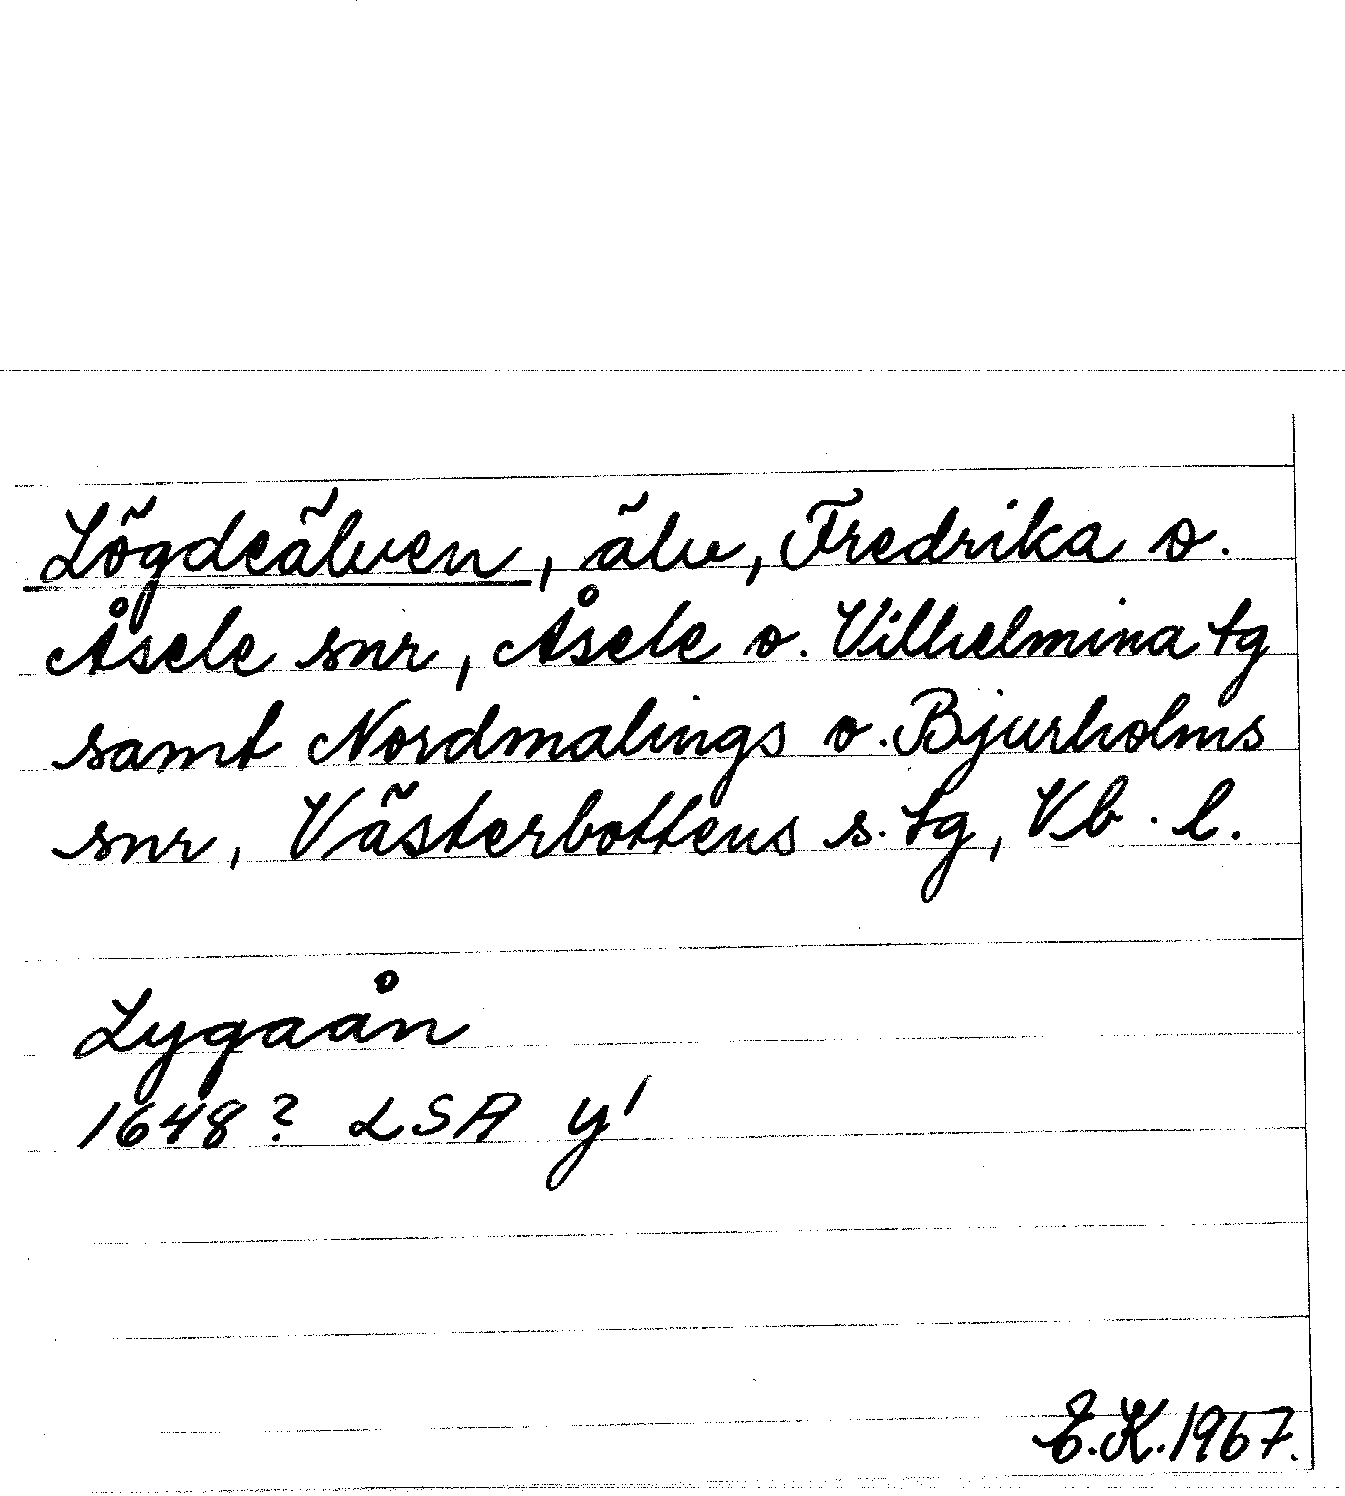 Lögdeälven, älv, Fredrika o.
Åsele snr, Åsele o. Vilhelmina tg
samt Nordmalings o. Bjurholms
snr, Västerbottens s. tg, Vb. l.
Lygaån
1648? LSA y'
E.K. 1967.